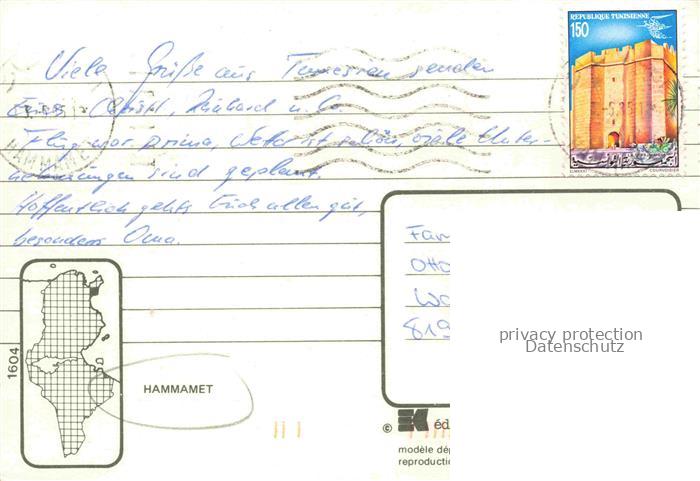 REPUBLIQUE TUNISIENNE
150
Viele Grüße aus Tunesien senden
Christl, Reinhard u.
Flug war prima, Wetter ist schön, viele Unter-
nehmungen sind geplant.
Hoffentlich gehts Euch allen gut,
besonders Oma.
Fam
Otto
819
privacy protection
Datenschutz
1604
HAMMAMET
© EK éd
modèle dép
reproductio